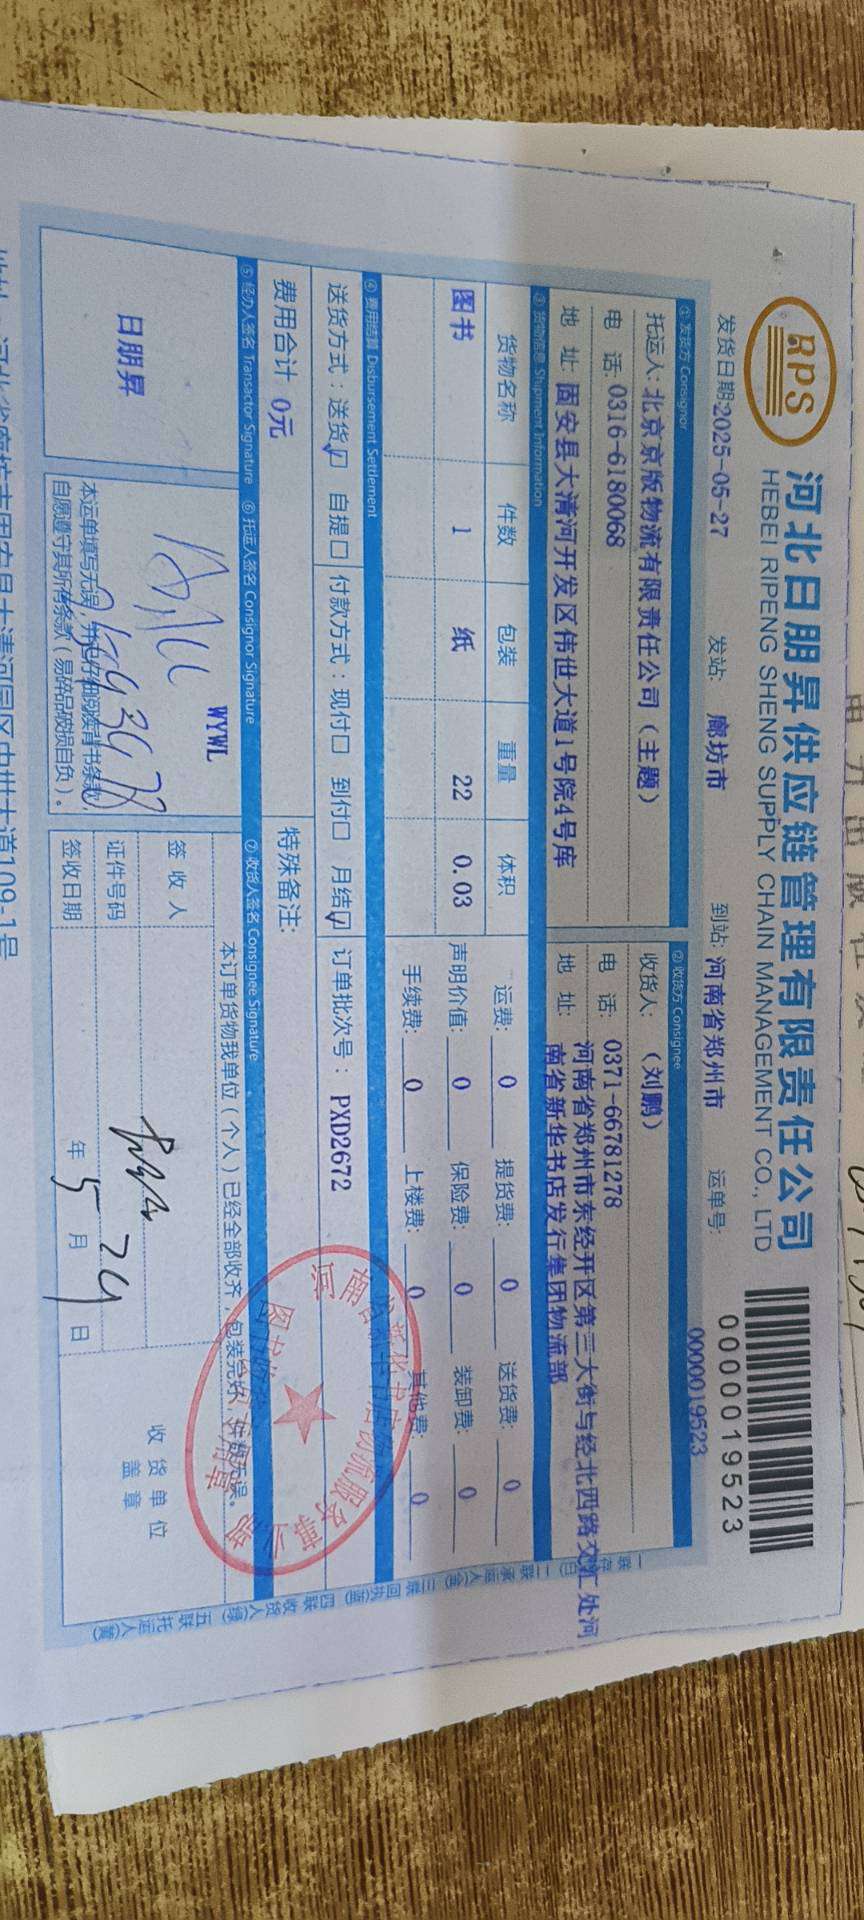 RPS
河北日朋昇供应链管理有限责任公司
HEBEI RIPENG SHENG SUPPLY CHAIN MANAGEMENT CO., LTD
0000019523
发货日期:2025-05-27 发站: 廊坊市 到站: 河南省郑州市 运单号: 0000019523
① 发货方 Consignor ② 收货方 Consignee
托运人: 北京京版物流有限责任公司(主题) 收货人: (刘鹏)
电 话: 0316-6180068 电 话: 0371-66781278
地 址: 固安县大清河开发区伟世大道1号院4号库 地 址: 河南省郑州市东经开区第三大街与经北四路交汇处河
南省新华书店发行集团物流部
③ 货物信息 Shipment Information
货物名称 件数 包装 重量 体积 运费: 0 提货费: 0 送货费: 0
图书 1 纸 22 0.03 声明价值: 0 保险费: 0 装卸费: 0
手续费: 0 上楼费: 0 其他费: 0
④ 费用结算 Disbursement Settlement
送货方式: 送货☑ 自提□ 付款方式: 现付□ 到付□ 月结☑ 订单批次号: PXD2672
费用合计 0元 特殊备注:
⑤ 经办人签名 Transactor Signature ⑥ 托运人签名 Consignor Signature ⑦ 收货人签名 Consignee Signature
日朋昇
WYWL
本运单填写无误,
自愿遵守其所有条款(易碎品破损自负)。
本订单货物我单位(个人)已经全部收齐,包装完好,件数无误。
签 收 人
证件号码
签收日期 年 5 月 29 日
收货单位
盖章
河南省新华书店物流服务事业部